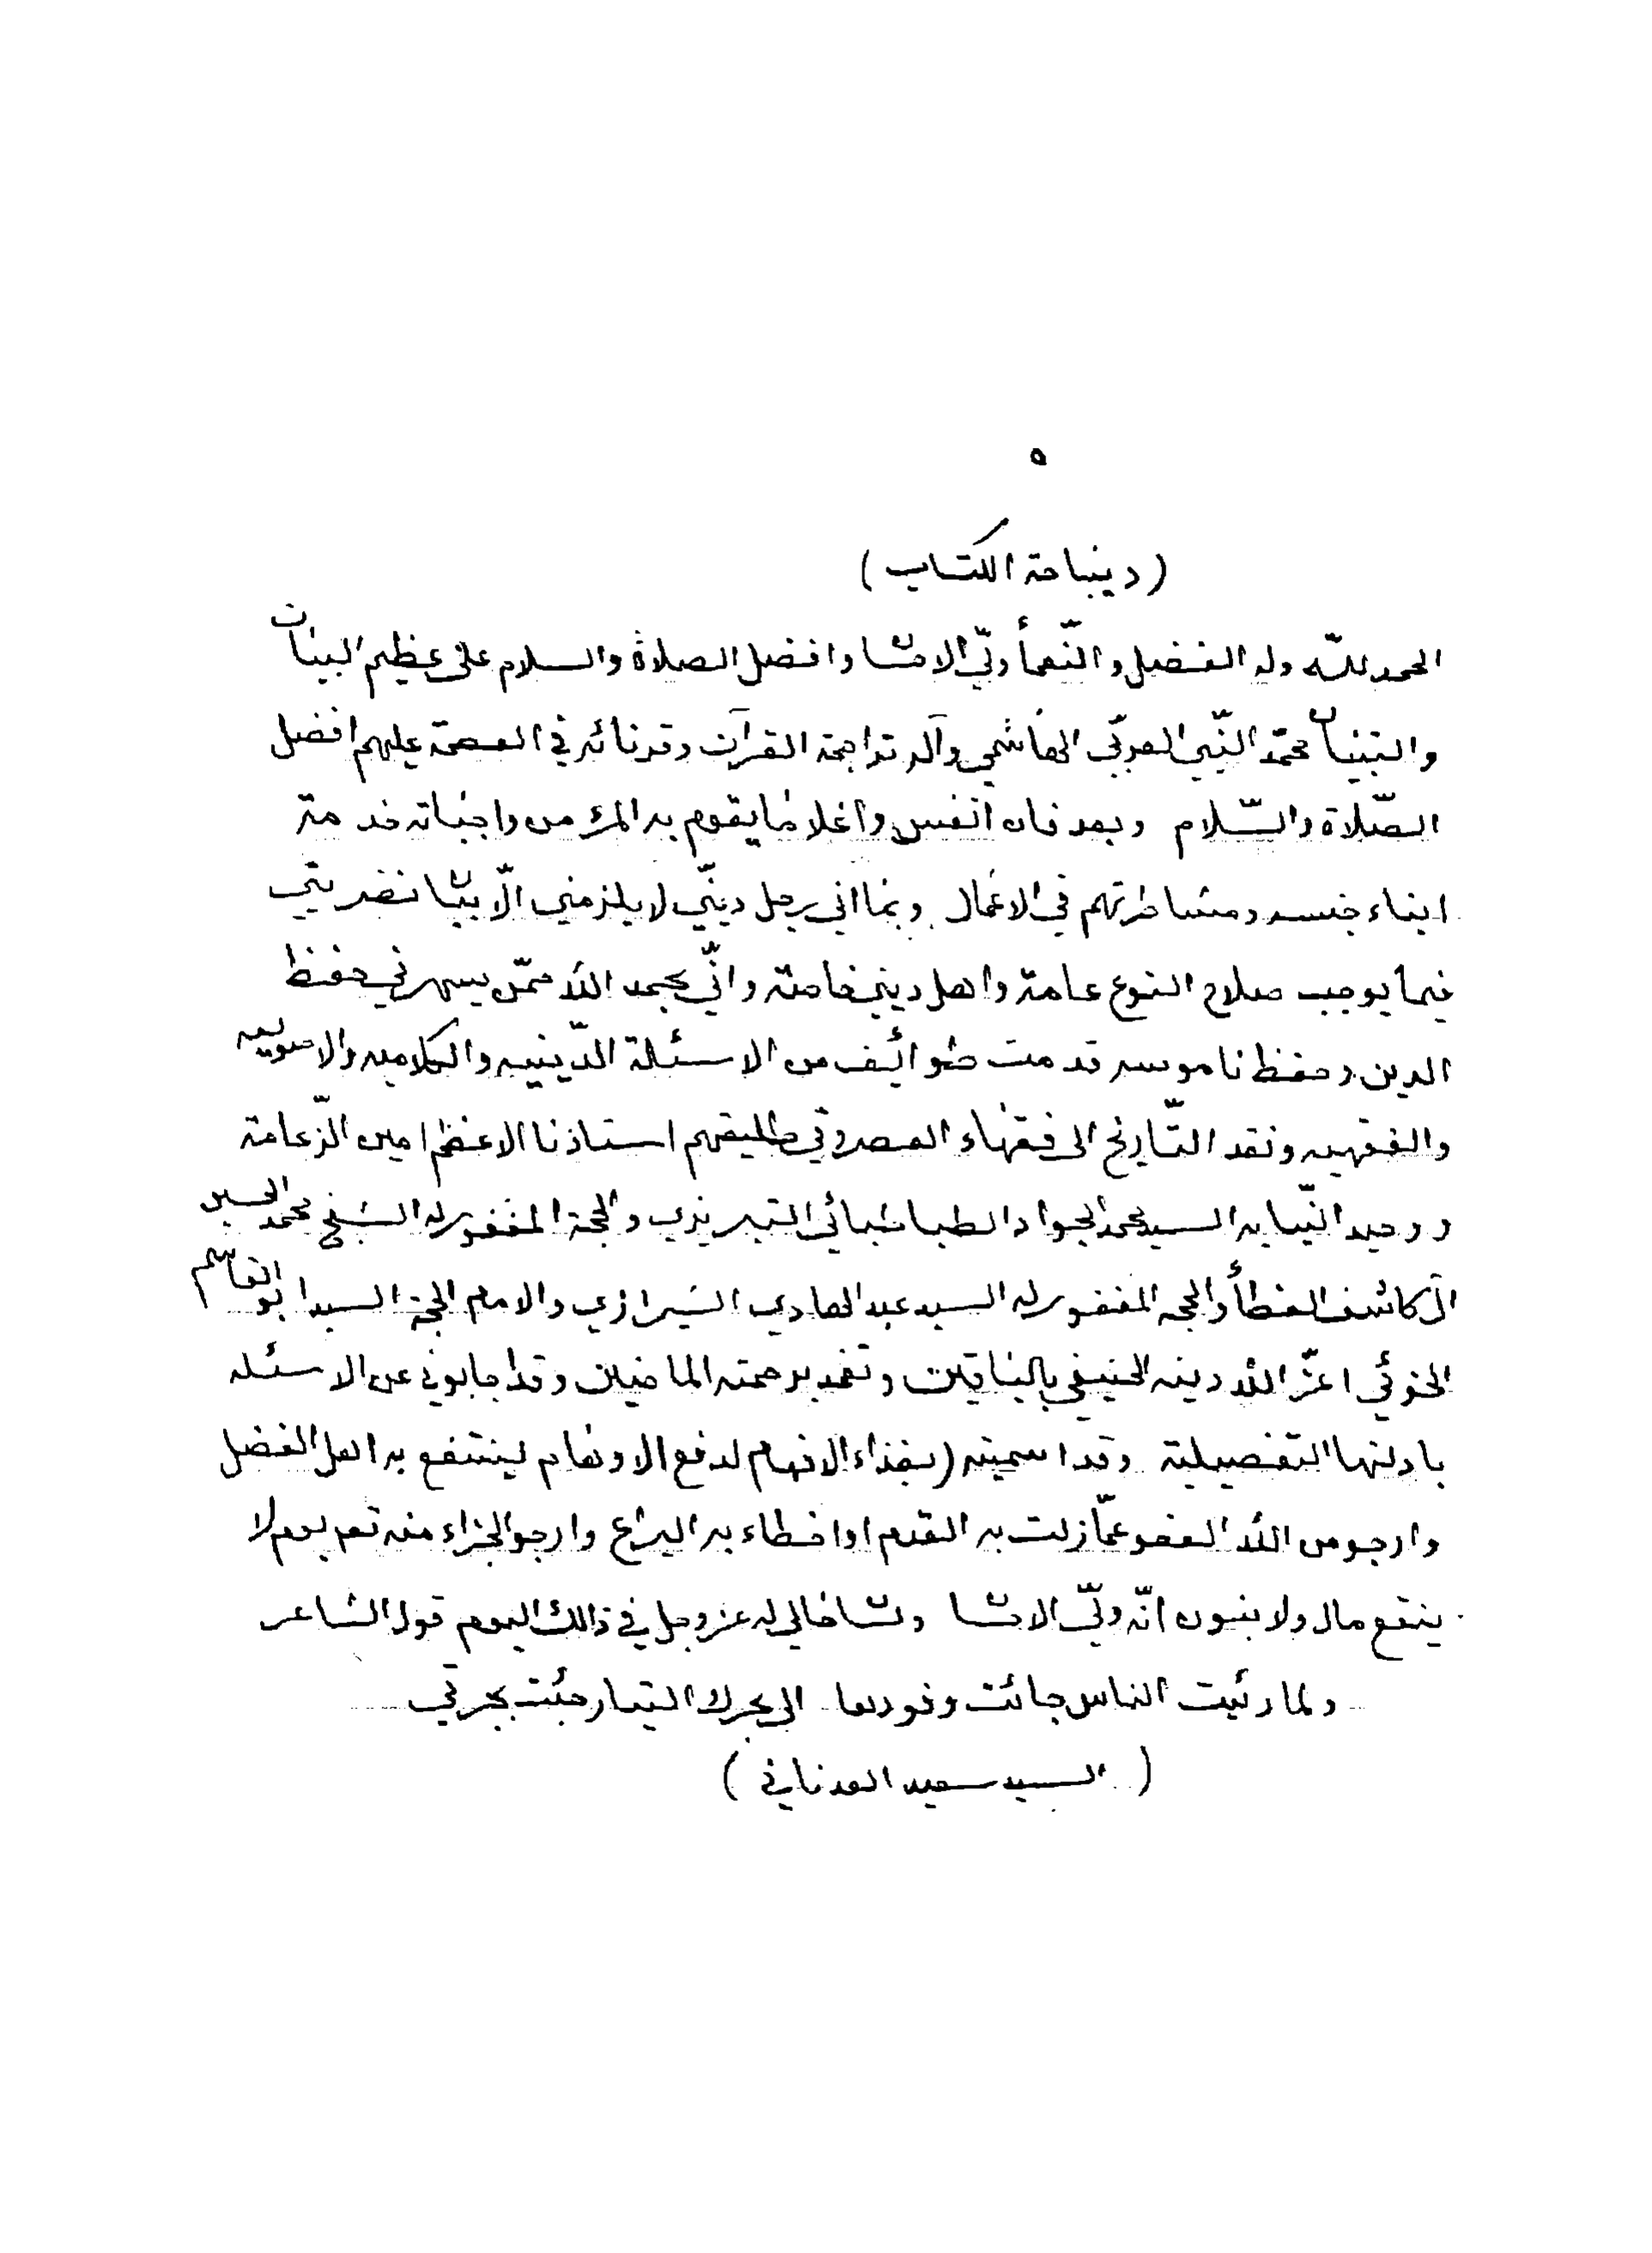 ٥
(ديباجة الكتاب)
الحمد للّه وله الفضل والنّعمأ وليّ الاحسان وافضل الصلاة والسلام على عظيم البيان
والتبيان محمّد النّبي العربّي الهاشمي وآله تراجمة القرآن وقرنائه في العصمة عليهم افضل
الصّلاة والسّلام وبعد فان انفس واغلا ما يقوم به المرء من واجباته خدمة
ابناء جنسه ومشاطرتهم في الاعمال وبما اني رجل دينّي لا يلزمني الّا بيان
فيما يوجب صلاح النوع عامة واهل ديني خاصة وانّي بحمد الله ممّن يسهر في حفظ
الدين وحفظ ناموسه قدمت طوائف من الاسئلة الدّينيه والكلاميه والاصوليه
والفقهيه ونقد التّاريخ الى فقهاء العصر وفي طليعتهم استاذنا الاعظم امين الزّعامة
ووحيد النّيابه السيد محمد الجواد الطباطبائي التبريزي والحجة المغفور له الشيخ محمد الحسين
آل كاشف الغطأ والحجه المغفور له السيد عبد الهادي الشيرازي والامام الحجة السيد ابو القاسم
الخوئي اعزّ الله دينه الحنيف بالباقين وتغمد برحمته الماضين وقد اجابوني عن الاسئله
بادلتها التفصيلية وقد اسميته (بغذاء الافهام لدفع الاوهام لينتفع به اهل الفضل
وارجو من الله العفو عمّا زلت به القدم او اخطاء به اليراع وارجو الجزاء منه تعم يوم لا
ينفع مال ولا بنون انّه وليّ الاحسان ولسان حالي له عز وجل في ذالك اليوم قول الشاعر
ولما رئيت الناس جائت وفودها الى بحرك التيار جئت بجرتي
(السيد سعيد العدناني)